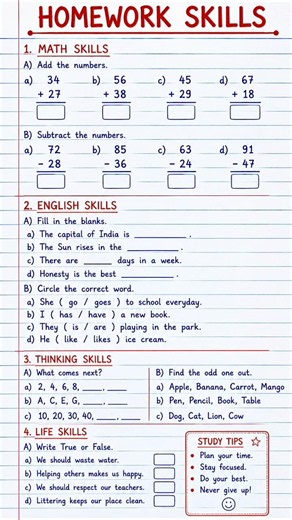 HOMEWORK SKILLS
1. MATH SKILLS
A) Add the numbers.
a) 34 b) 56 c) 45 d) 67
+ 27 + 38 + 29 + 18
B) Subtract the numbers.
a) 72 b) 85 c) 63 d) 91
- 28 - 36 - 24 - 47
2. ENGLISH SKILLS
A) Fill in the blanks.
a) The capital of India is __________ .
b) The Sun rises in the __________ .
c) There are _____ days in a week.
d) Honesty is the best __________ .
B) Circle the correct word.
a) She ( go / goes ) to school everyday.
b) I ( has / have ) a new book.
c) They ( is / are ) playing in the park.
d) He ( like / likes ) ice cream.
3. THINKING SKILLS
A) What comes next?
a) 2, 4, 6, 8, ____, ____
b) A, C, E, G, ____, ____
c) 10, 20, 30, 40, ____, ____
B) Find the odd one out.
a) Apple, Banana, Carrot, Mango
b) Pen, Pencil, Book, Table
c) Dog, Cat, Lion, Cow
4. LIFE SKILLS
A) Write True or False.
a) We should waste water.
b) Helping others makes us happy.
c) We should respect our teachers.
d) Littering keeps our place clean.
STUDY TIPS
• Plan your time.
• Stay focused.
• Do your best.
• Never give up!